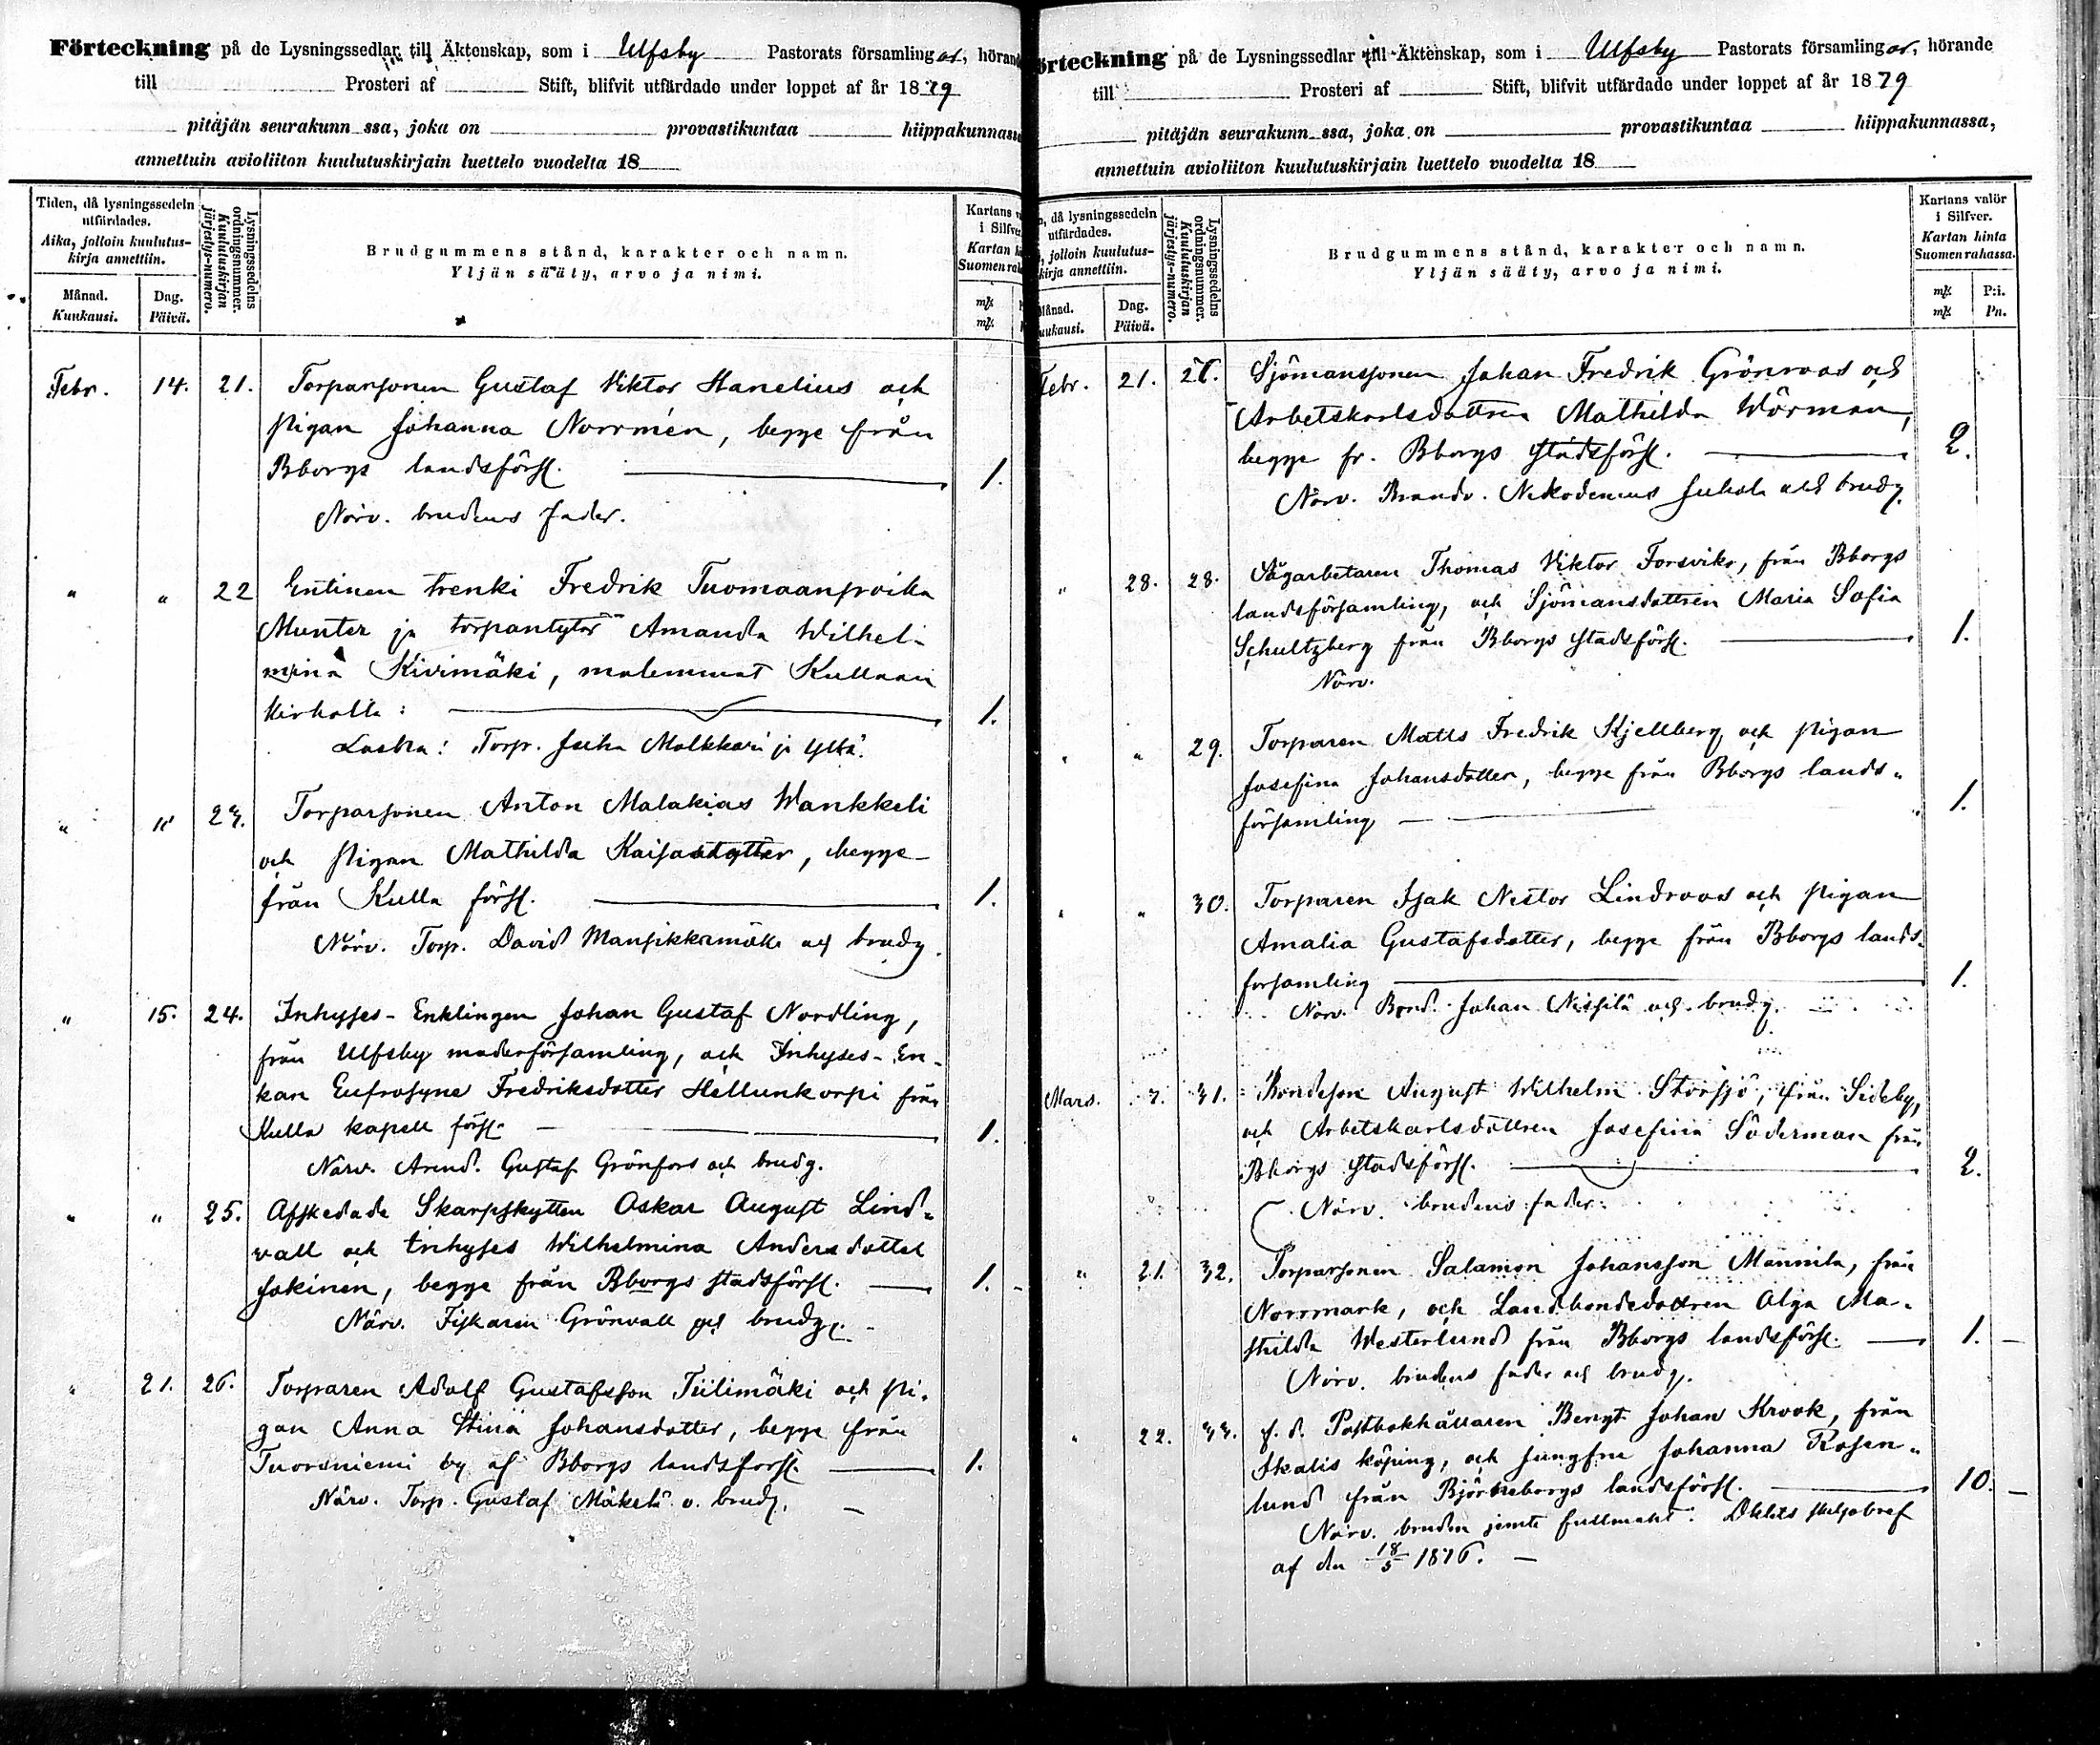 Förteckning på de Lysningssedlar till Äktenskap, som i Ulfsby Pastorats församlingar, hörande
till Prosteri af Stift, blifvit utfärdade under loppet af år 1879
pitäjän seurakunn ssa, joka on provastikuntaa hiippakunnassa
annettuin avioliiton kuulutuskirjain luettelo vuodelta 18
Tiden, då lysningssedeln utfärdades.
Aika, jolloin kuulutus-
kirja annettiin.
Månad.
Kuukausi.
Dag.
Päivä.
Lysningssedelns
ordningsnummer.
Kuulutuskirjan
järjestys-numero.
Brudgummens stånd, karakter och namn.
Yljän sääty, arvo ja nimi.
Kartans
i Silfver
Kartan
Suomen
mk
mk
Febr. 14. 21. Torparsonen Gustaf Viktor Hanelius och
pigan Johanna Norrmén, begge från
Bborgs landsförs. 1.
Närv. brudens fader.
" " 22 Entinen trenki Fredrik Tuomaanpoika
Munter ja torpantytär Amanda Wilhel-
mina Kivimäki, molemmat Kullaan
kirkolla: 1.
Läsnä: Torp. Juha Malkkari ja yljkä.
" " 23. Torparsonen Anton Malakias Wankkeli
och pigan Mathilda Kaisantytter, begge
från Kulla förs. 1.
Närv. Torp. David Mansikkamäki och brudg.
" 15. 24. Inhyses-Enklingen Johan Gustaf Nordling,
från Ulfsby moderförsamling, och Inhyses-En-
kan Eufrosyne Fredriksdotter Hellunkorpi från
Kulla kapell förs. 1.
Närv. Arend. Gustaf Grönfors och brudg.
" " 25. Afskedade Skarpskytten Oskar August Lind-
vall och Inhyses Wilhelmina Andersdotter
Jokinen, begge från Bborgs stadsförs. 1. -
Närv. Fiskaren Grönvall och brudg.
" 21. 26. Torparen Adolf Gustafsson Tiilimäki och pi-
gan Anna Stina Johansdotter, begge från
Tuorsniemi by af Bborgs landsförs. 1.
Närv. Torp. Gustaf Mäkelä o. brudg.
Förteckning på de Lysningssedlar till Äktenskap, som i Ulfsby Pastorats församlingar, hörande
till Prosteri af Stift, blifvit utfärdade under loppet af år 1879
pitäjän seurakunn ssa, joka on provastikuntaa hiippakunnassa,
annettuin avioliiton kuulutuskirjain luettelo vuodelta 18
då lysningssedeln
utfärdades.
jolloin kuulutus-
kirja annettiin.
Månad.
Kuukausi.
Dag.
Päivä.
Lysningssedelns
ordningsnummer.
Kuulutuskirjan
järjestys-numero.
Brudgummens stånd, karakter och namn.
Yljän sääty, arvo ja nimi.
Kartans valör
i Silfver.
Kartan hinta
Suomen rahassa.
mk P:i.
mk Pn.
Febr. 21. 27. Sjömanssonen Johan Fredrik Grönroos och
Arbetskarlsdottren Mathilda Wörman,
begge fr. Bborgs stadsförs. 2.
Närv. Nikodemus Juhola och brudg.
" 28. 28. Sågarbetaren Thomas Viktor Forsvike, från Bborgs
landsförsamling, och Sjömansdottren Maria Sofia
Schultzberg från Bborgs stadsförs. 1.
Närv.
" " 29. Torparen Matts Fredrik Kjellberg och pigan
Josefina Johansdotter, begge från Bborgs lands-
församling 1.
" " 30. Torparen Isak Nestor Lindroos och pigan
Amalia Gustafsdotter, begge från Bborgs lands-
forsamling 1.
Närv. Bond. Johan Nissilä och brudg.
Mars. 7. 31. Bondeson August Wilhelm Storsjö, från Sideby,
och Arbetskarlsdottren Josefina Söderman från
Bborgs stadsförs. 2.
Närv. brudens fader.
" 21. 32. Torparsonen Salamon Johansson Männila, från
Norrmark, och Landbondedottren Olga Ma-
thilda Westerlund från Bborgs landsförs. 1. -
Närv. brudens fader och brudg.
" 22. 33. f. d. Postbokhållaren Bengt Johan Krook, från
Ikalis köping, och Jungfru Johanna Rosen-
lund från Björneborgs landsförs. 10. -
Närv. bruden jemte fullmakt.
af den 18/5 1876. -